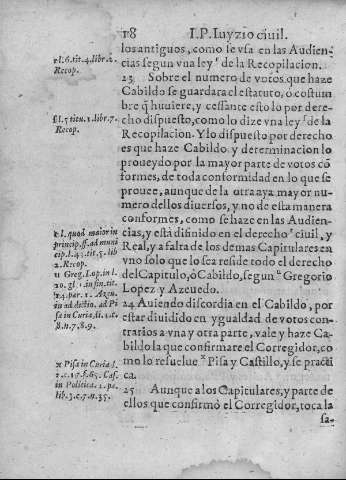 18 I.P. Iuyzio ciuil.
los antiguos, como se vsa en las Audien-
cias segun vna ley r de la Recopilacion.
23 Sobre el numero de votos que haze
Cabildo se guardara el estatuto, o costum
bre q̃ huuiere, y cessãte esto lo por dere-
cho dispuesto, como lo dize vna ley s de la
Recopilacion. Y lo dispuesto por derecho
es que haze Cabildo y determinacion lo
proueydo por la mayor parte de votos cõ
formes, de toda conformidad en lo que se
prouee, aunque de la otra aya mayor nu-
mero dellos diuersos, y no de esta manera
conformes, como se haze en las Audien-
cias, y está difinido en el derecho t ciuil, y
Real, y a falta de los demas Capitulares en
vno solo que lo sea reside todo el derecho
del Capitulo, ò Cabildo, segun u Gregorio
Lopez y Azeuedo.
24 Auiendo discordia en el Cabildo, por
estar diuidido en ygualdad de votos con-
trarios a vna y otra parte, vale y haze Ca-
bildo la que confirmare el Corregidor, co
mo lo resuelue x Pisa y Castillo, y se practi
ca.
25 Aunque a los Capitulares, y parte de
ellos que confirmó el Corregidor, toca la
sa-
r l.6. tit.4. libr.2.
Recop.
s l.5 titu.1. libr.7.
Recop.
t l. quod maior in
princip. ff. ad muni
cip. l.43. tit.5. lib
2. Recop.
u Greg. Lop. in l.
20. gl.1. in fin. tit.
24. par.1. Azeue.
in ad dictio. ad Pi
sa in Curia, li.1. c.
8. n.7.8.9.
x Pisa in Curia l.
2. c.17. f.65. Cas.
in Politica. 2. pa.
lib.3. c.7. n.35.